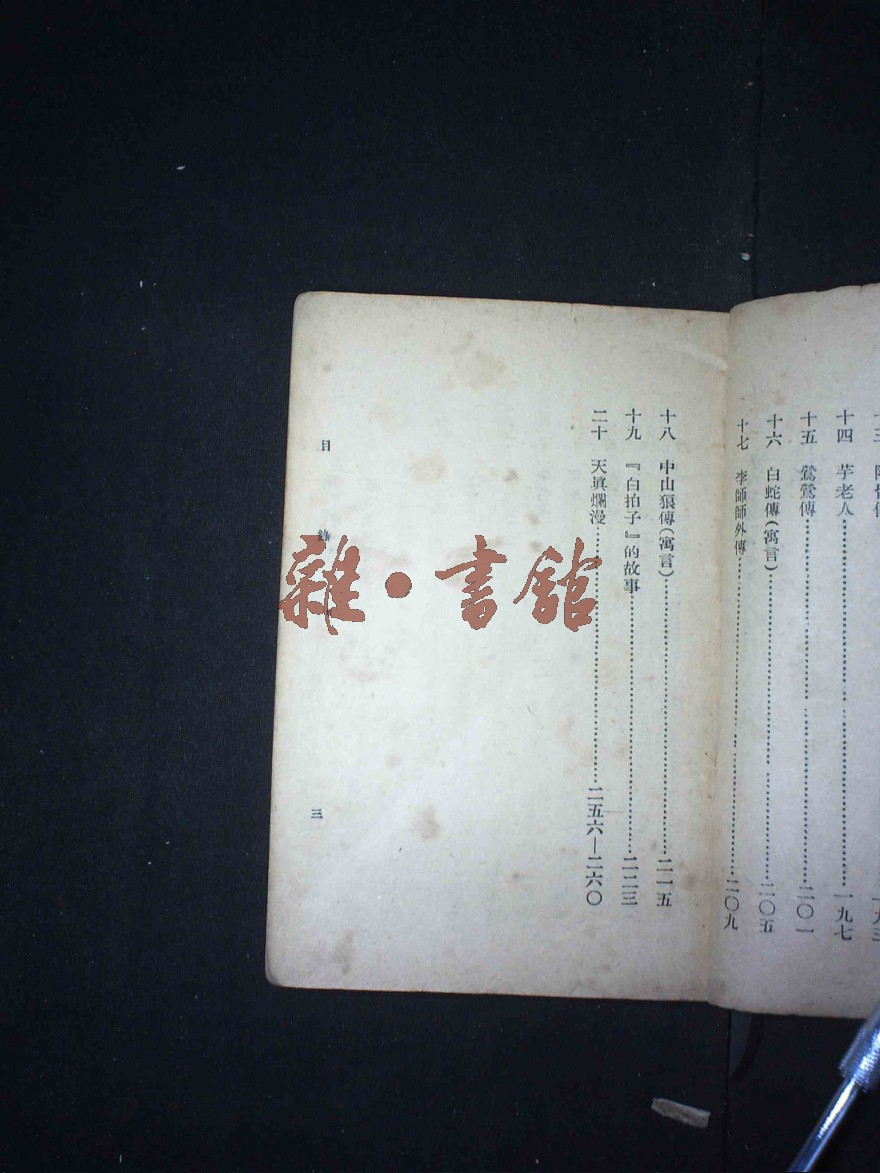 十四　芋老人……一九七
十五　鶯鶯傳……二〇一
十六　白蛇傳(寓言)……二〇五
十七　李師師外傳……二〇九
十八　中山狼傳(寓言)……二一五
十九　『白拍子』的故事……二二三
二十　天眞爛漫……二五六—二六〇
目　錄
三
雜·書館